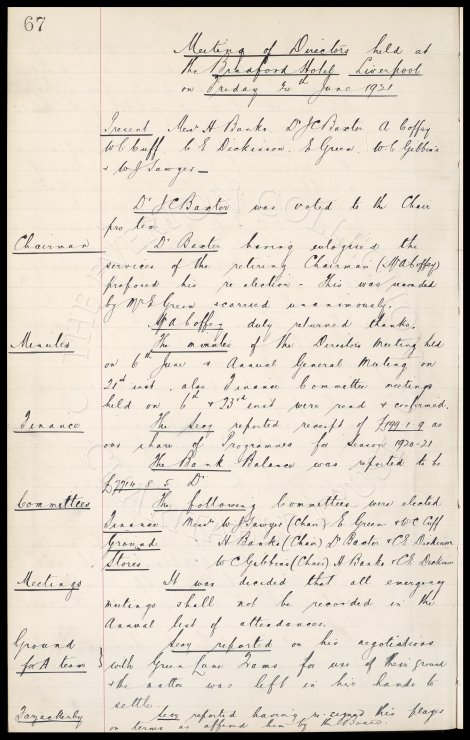 67
Meeting of Directors held at
the Bradford Hotel Liverpool
on Friday 24th June 1921
Present Messrs H Banks. Dr J C Baxter. A Coffey
W C Cuff. C E Dickinson. E Green. W C Gibbins
& W J Sawyer
Dr J C Baxter was voted to the Chair
pro tem
Chairman
Dr Baxter having eulogised the
services of the retiring Chairman (Mr A Coffey)
proposed his re-election - This was seconded
by Mr E Green & carried unanimously.
Mr A Coffey duly returned thanks.
Minutes
The minutes of the Directors Meeting held
on 6th June & Annual General Meeting on
21st inst. also Finance Committee meetings
held on 6th & 23rd inst were read & confirmed.
Finance
The Secy reported receipt of £199.1.9 as
our share of Programmes for Season 1920-21
The Bank Balance was reported to be
£7714.8.5 Dr
Committees
The following Committees were elected
Finance Messrs W J Sawyer (Chair) E Green & W C Cuff
Ground H Banks (Chair) Dr Baxter & C E Dickinson
Stores W C Gibbins (Chair) H Banks & C E Dickinson
Meetings
It was decided that all emergency
meetings shall not be recorded in the
Annual list of attendances.
Ground for A team
Secy reported on his negotiations
with Green Lane Trams for use of their ground
& the matter was left in his hands to
settle
Secy reported having re-signed this player
on terms as offered him by the Board.